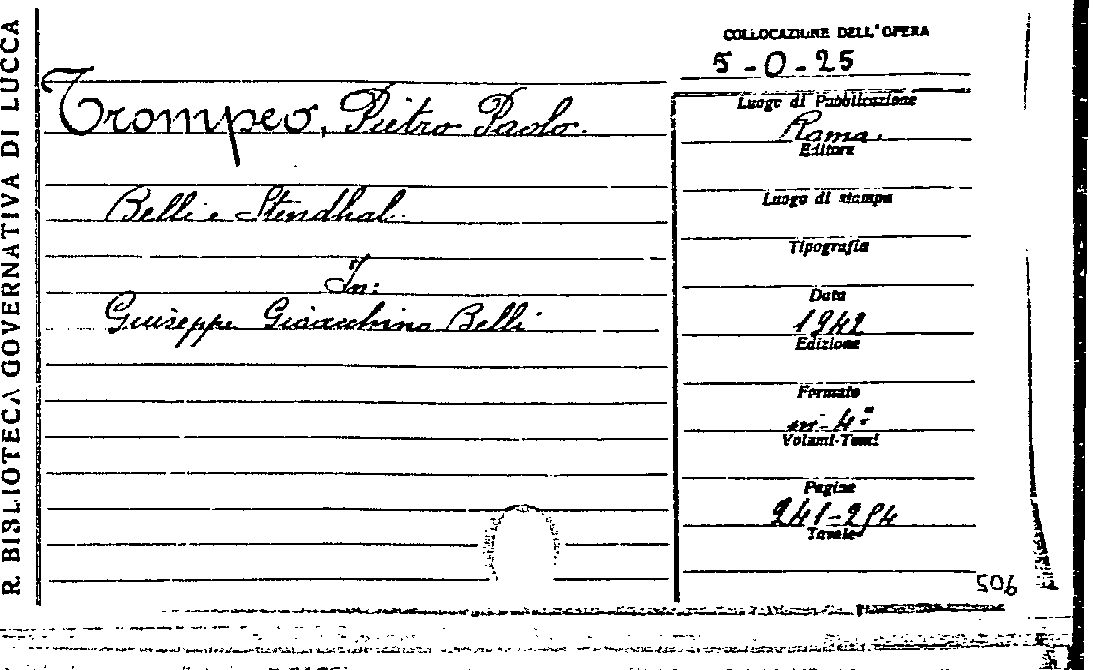 R. BIBLIOTECA GOVERNATIVA DI LUCCA
Trompeo, Pietro Paolo.
Belli e Stendhal.
In:
Giuseppe Gioacchino Belli
COLLOCAZIONE DELL'OPERA
5-0-25
Luogo di Pubblicazione
Roma.
Editore
Luogo di stampa
Tipografia
Data
1942
Edizione
Formato
in-4°
Volumi-Tomi
Pagine
241-254
Tavole
905